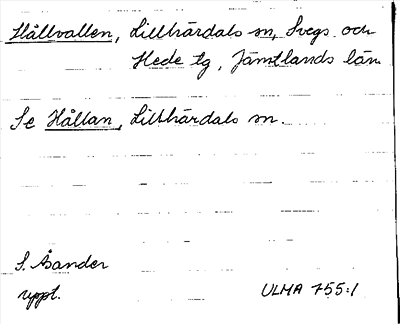 Hållvallen, Lillhärdals sn, Svegs och
Hede tg, Jämtlands län
Se Hållan, Lillhärdals sn.
S. Åsander
uppt.
ULMA 755:1